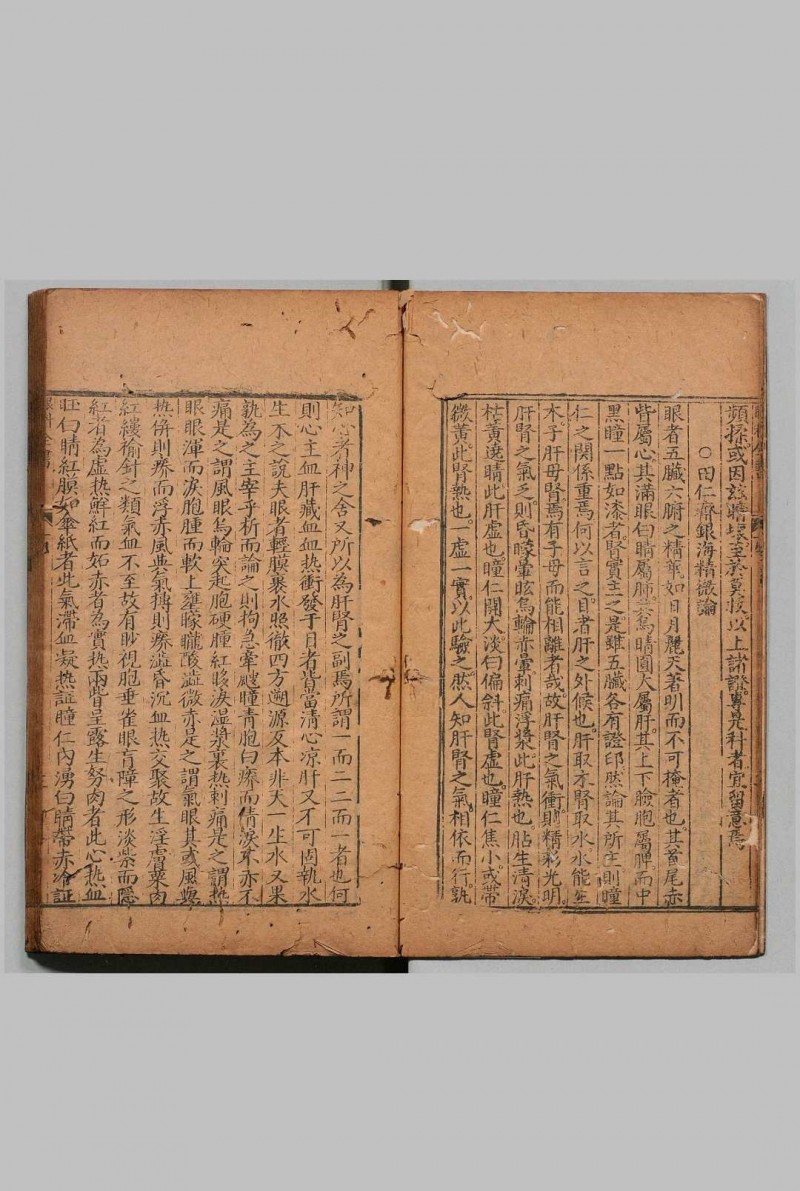 頻揉或因玆瞻壞至於莫捄以上諸證專是科者宜留意焉
○田仁齋銀海精微論
眼者五臟六腑之精華如日月麗天著明而不可掩者也其首尾赤
眥屬心其滿眼白睛屬肺其烏睛圓大屬肝其上下瞼胞屬脾而中
黑瞳一點如漆者腎實主之是雖五臟各有證印然論其所主則瞳
仁之関係重焉何以言之目者肝之外候也肝取木腎取水水能生
木子肝母腎焉有子母而能相離者哉故肝腎之氣衝則精彩光明
肝腎之氣乏則昏矇暈眩烏輪赤暈刺痛浮漿此肝熱也胋生清淚
枯黃遶睛此肝虛也瞳仁開大淡白偏斜此腎虛也瞳仁焦小或帶
微黃此腎熱也一虛一實以此驗之然人知肝腎之氣相依而行孰
知心者神之舍又所以為肝腎之副焉所謂一而二二而一者也何
則心主血肝藏血血热衝發于目者皆當清心凉肝又不可固執水
生木之說夫眼者輕膜裹水照徹四方遡源反本非天一生水又果
孰為之主宰乎析而論之則拘急牽飕瞳青胞白痒而倩淚不赤不
痛是之謂風眼烏輪突起胞硬腫紅眵淚溫漿裏热刺痛是之謂热
眼眼渾而淚胞腫而軟上壅矇矓酸澁微赤是之謂氣眼其或風與
热併則痒而浮赤風與氣搏則痒澁昏沉血热交聚故生淫膚粟肉
紅縷偷針之類氣血不至故有眇視胞垂雀眼盲障之形淡紫而隱
紅者為虛热鮮紅而妬赤者為實热兩眥呈露生努肉者此心热血
旺白睛紅膜如傘紙者此氣滯血凝热証瞳仁內湧白睛帶赤冷証